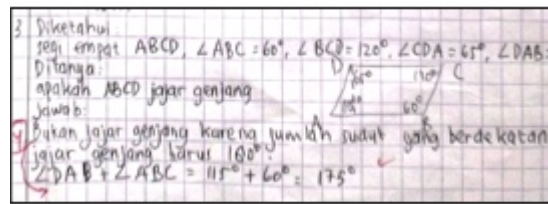 3 Diketahui
segi empat ABCD, ∠ABC = 60°, ∠BCD = 120°, ∠CDA = 65°, ∠DAB =
Ditanya:
apakah ABCD jajar genjang
Jawab:
D C
65° 120°
115° 60°
A B
Bukan jajar genjang karena jumlah sudut yang berdekatan
jajar genjang harus 180°.
∠DAB + ∠ABC = 115° + 60° = 175°